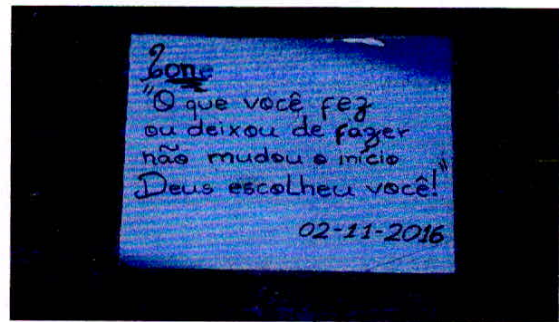 Ione
"O que você fez
ou deixou de fazer
não mudou o início
Deus escolheu você!"
02-11-2016